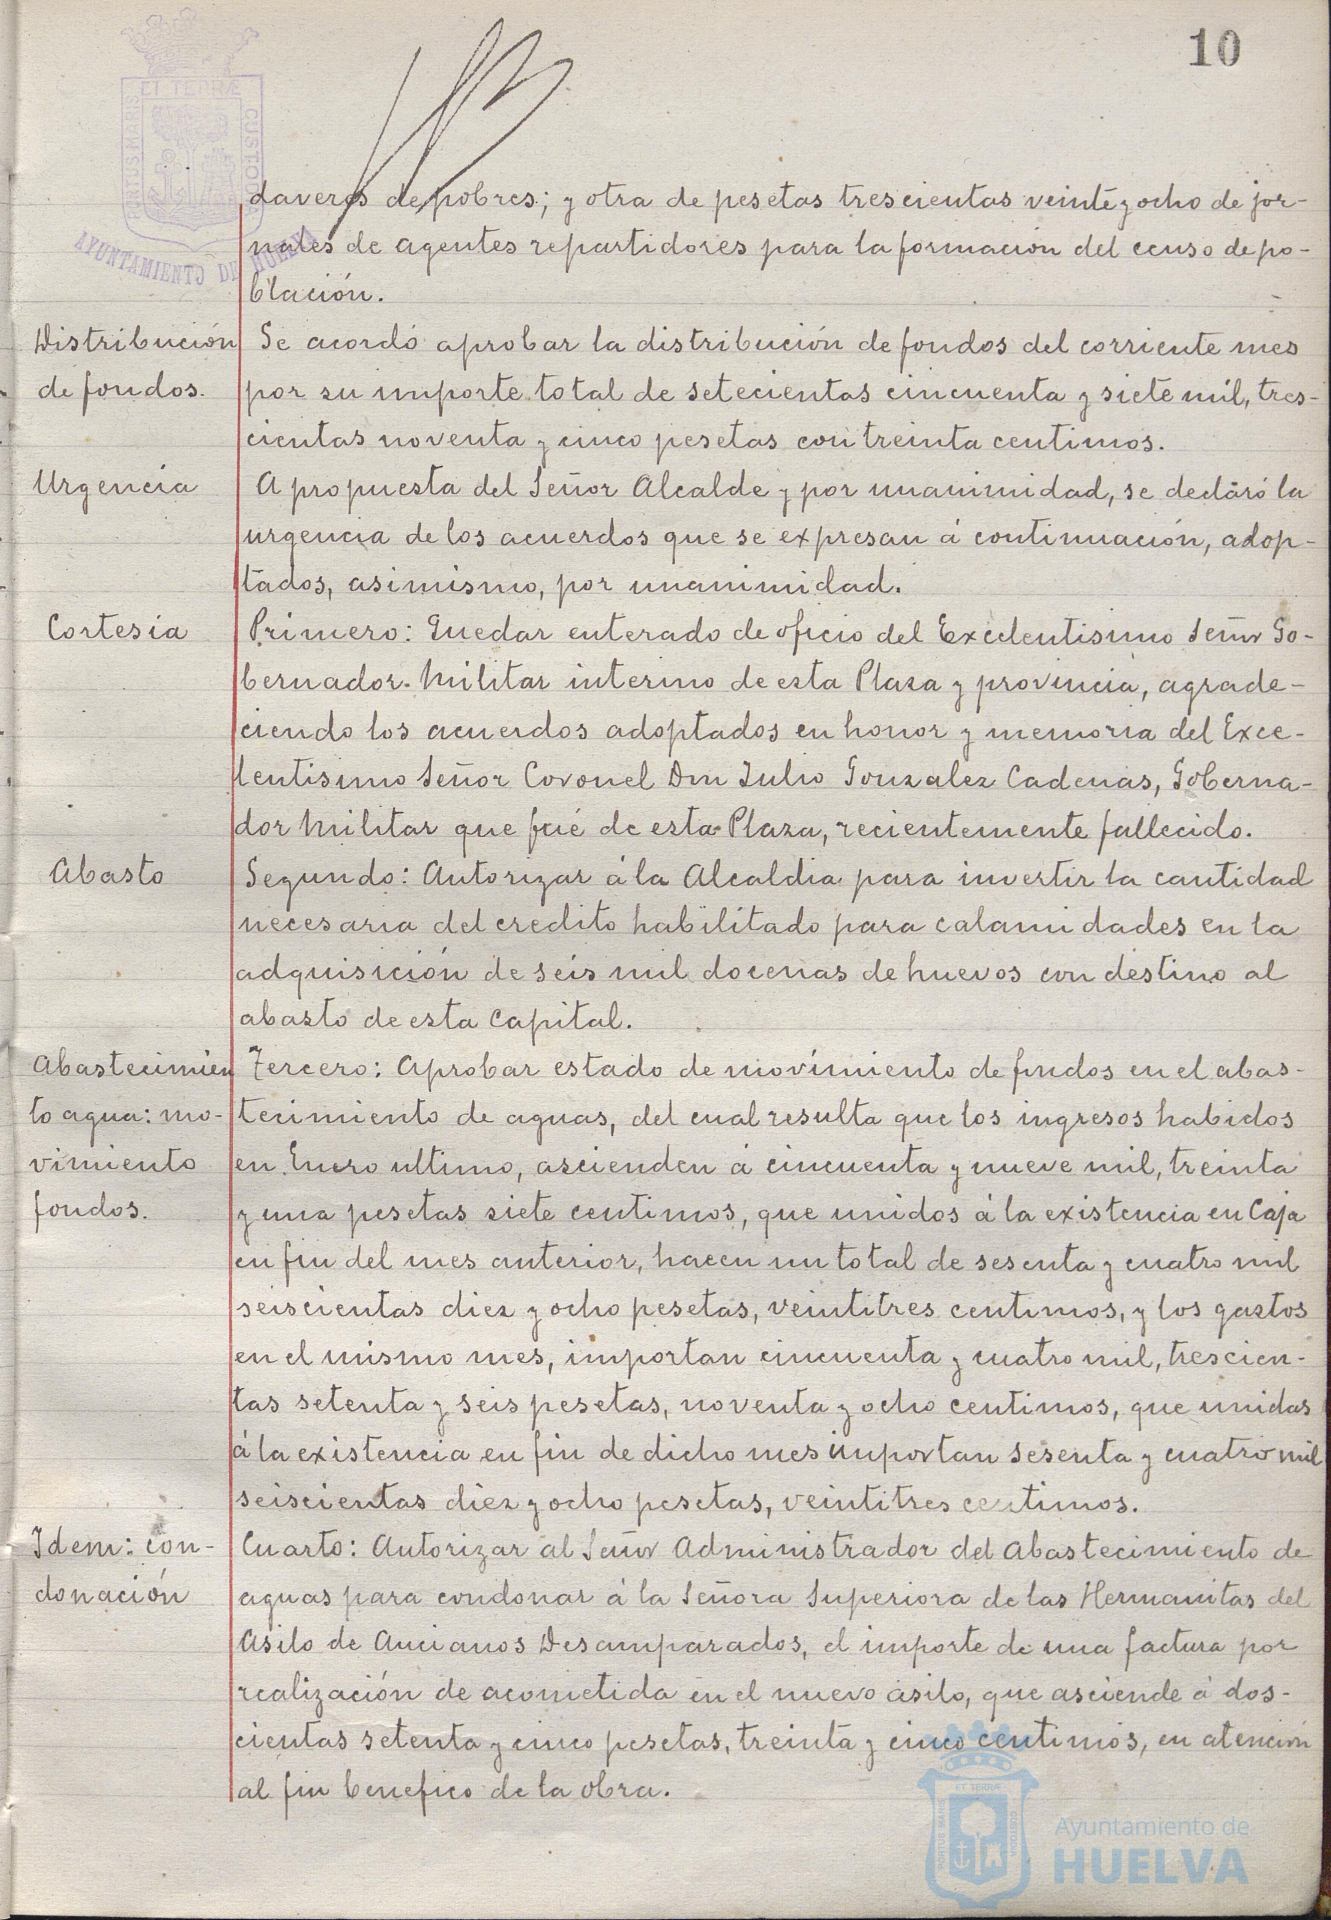 10
ET TERRÆ
PORTUS MARIS
CUSTODIA
AYUNTAMIENTO DE HUELVA
daveres de pobres; y otra de pesetas trescientas veinte y ocho de jor-
nales de agentes repartidores para la formación del censo de po-
blación.
Distribución
de fondos.
Se acordó aprobar la distribución de fondos del corriente mes
por su importe total de setecientas cincuenta y siete mil, tres-
cientas noventa y cinco pesetas con treinta centimos.
Urgencia
A propuesta del Señor Alcalde y por unanimidad, se declaró la
urgencia de los acuerdos que se expresan á continuación, adop-
tados, asimismo, por unanimidad.
Cortesia
Primero: Quedar enterado de oficio del Excelentisimo Señor Go-
bernador Militar interino de esta Plaza y provincia, agrade-
ciendo los acuerdos adoptados en honor y memoria del Exce-
lentisimo Señor Coronel Don Julio Gonzalez Cadenas, Goberna-
dor Militar que fué de esta Plaza, recientemente fallecido.
Abasto
Segundo: Autorizar á la Alcaldia para invertir la cantidad
necesaria del credito habilitado para calamidades en la
adquisición de seis mil docenas de huevos con destino al
abasto de esta Capital.
Abastecimien
to agua: mo-
vimiento
fondos.
Tercero: Aprobar estado de movimiento de fondos en el abas-
tecimiento de aguas, del cual resulta que los ingresos habidos
en Enero ultimo, ascienden á cincuenta y nueve mil, treinta
y una pesetas siete centimos, que unidos á la existencia en Caja
en fin del mes anterior, hacen un total de sesenta y cuatro mil
seiscientas diez y ocho pesetas, veintitres centimos, y los gastos
en el mismo mes, importan cincuenta y cuatro mil, trescien-
tas setenta y seis pesetas, noventa y ocho centimos, que unidas
á la existencia en fin de dicho mes importan sesenta y cuatro mil
seiscientas diez y ocho pesetas, veintitres centimos.
Idem: con-
donación
Cuarto: Autorizar al Señor Administrador del Abastecimiento de
aguas para condonar á la Señora Superiora de las Hermanitas del
Asilo de Ancianos Desamparados, el importe de una factura por
realización de acometida en el nuevo asilo, que asciende á dos-
cientas setenta y cinco pesetas, treinta y cinco centimos, en atención
al fin benefico de la obra.
ET TERRÆ
PORTUS MARIS
CUSTODIA
Ayuntamiento de
HUELVA